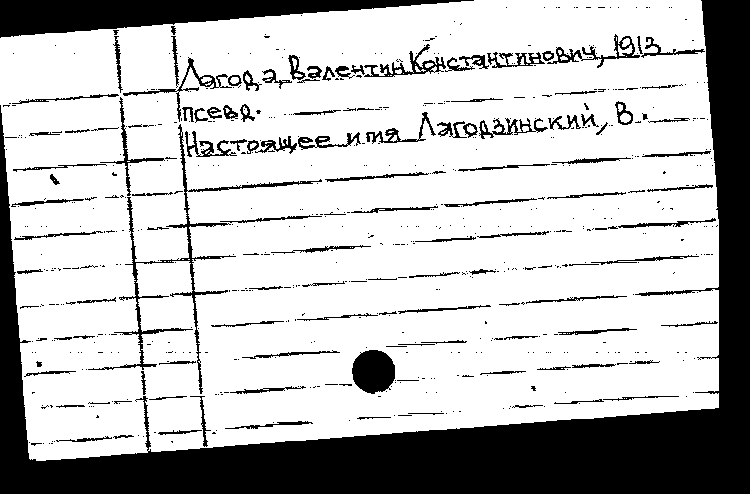 Лягода, Валентин Константинович, 1913
псевд.
Настоящее имя Лягодзинский, В.